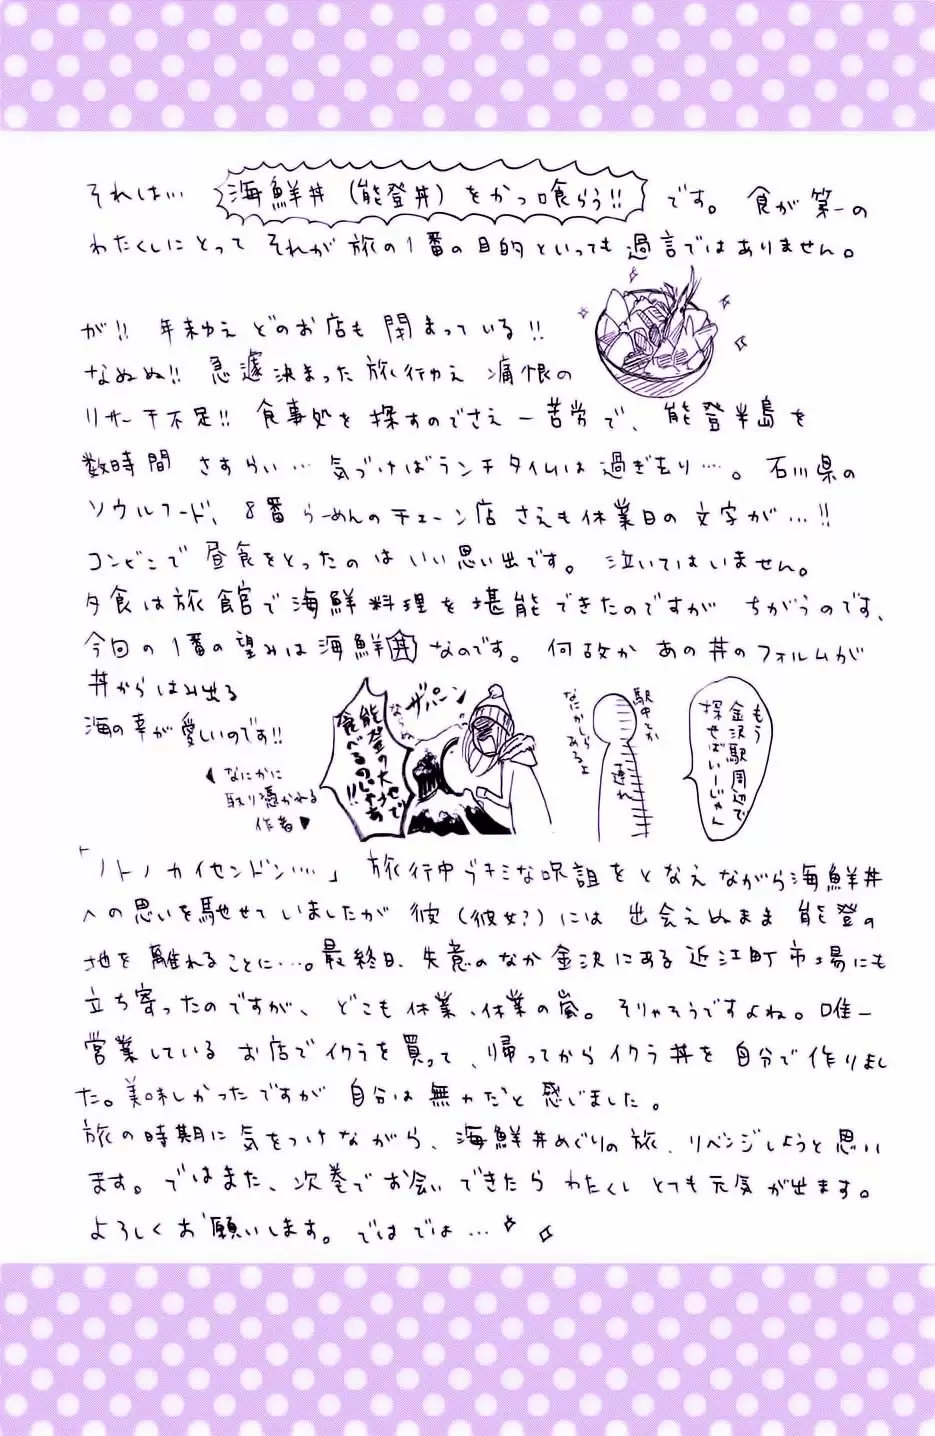 それは… 海鮮丼(能登丼)をかっ喰らう!! です。 食が第一の
わたくしにとって それが旅の1番の目的といっても過言ではありません。
が!! 年末ゆえ どのお店も 閉まっている!!
なぬぬ!! 急遽決まった旅行ゆえ 痛恨の
リサーチ不足!! 食事処を探すのでさえ一苦労で、能登半島を
数時間 さすらい… 気づけばランチタイムは過ぎ去り…。石川県の
ソウルフード、8番らーめんのチェーン店さえも休業日の文字が…!!
コンビニで昼食をとったのはいい思い出です。 泣いてはいません。
夕食は旅館で海鮮料理を堪能できたのですが ちがうのです、
今回の1番の望みは海鮮丼なのです。 何故かあの丼のフォルムが
丼からはみ出る
海の幸が愛しいのです!!
なにかに
取り憑かれる
作者
もう
金沢駅周辺で
探せばいーじゃん
駅中とか
なにかしら
あるよ
連れ
ザパーン
ならぬ
能登の大地で
食べるのじゃあ
!!
「ノトノカイセンドン…」 旅行中ブキミな呪詛をとなえながら海鮮丼
への思いを馳せていましたが 彼(彼女?)には 出会えぬまま 能登の
地を 離れることに…。最終日、失意のなか金沢にある近江町市場にも
立ち寄ったのですが、 どこも休業、休業の嵐。そりゃそうですよね。唯一
営業している お店でイクラを買って、帰ってからイクラ丼を自分で作りまし
た。美味しかったですが 自分は無力だと感じました。
旅の時期に気をつけながら、海鮮丼めぐりの旅、リベンジしようと思い
ます。ではまた、次巻でお会いできたら わたくし とても元気が出ます。
よろしくお願いします。ではでは…